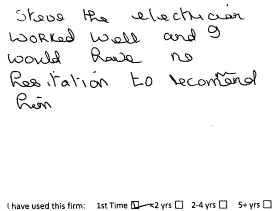 Steve the electrician
worked well and I
would have no
hesitation to recomend
him
I have used this firm: 1st Time ☑ <2 yrs ☐ 2-4 yrs ☐ 5+ yrs ☐